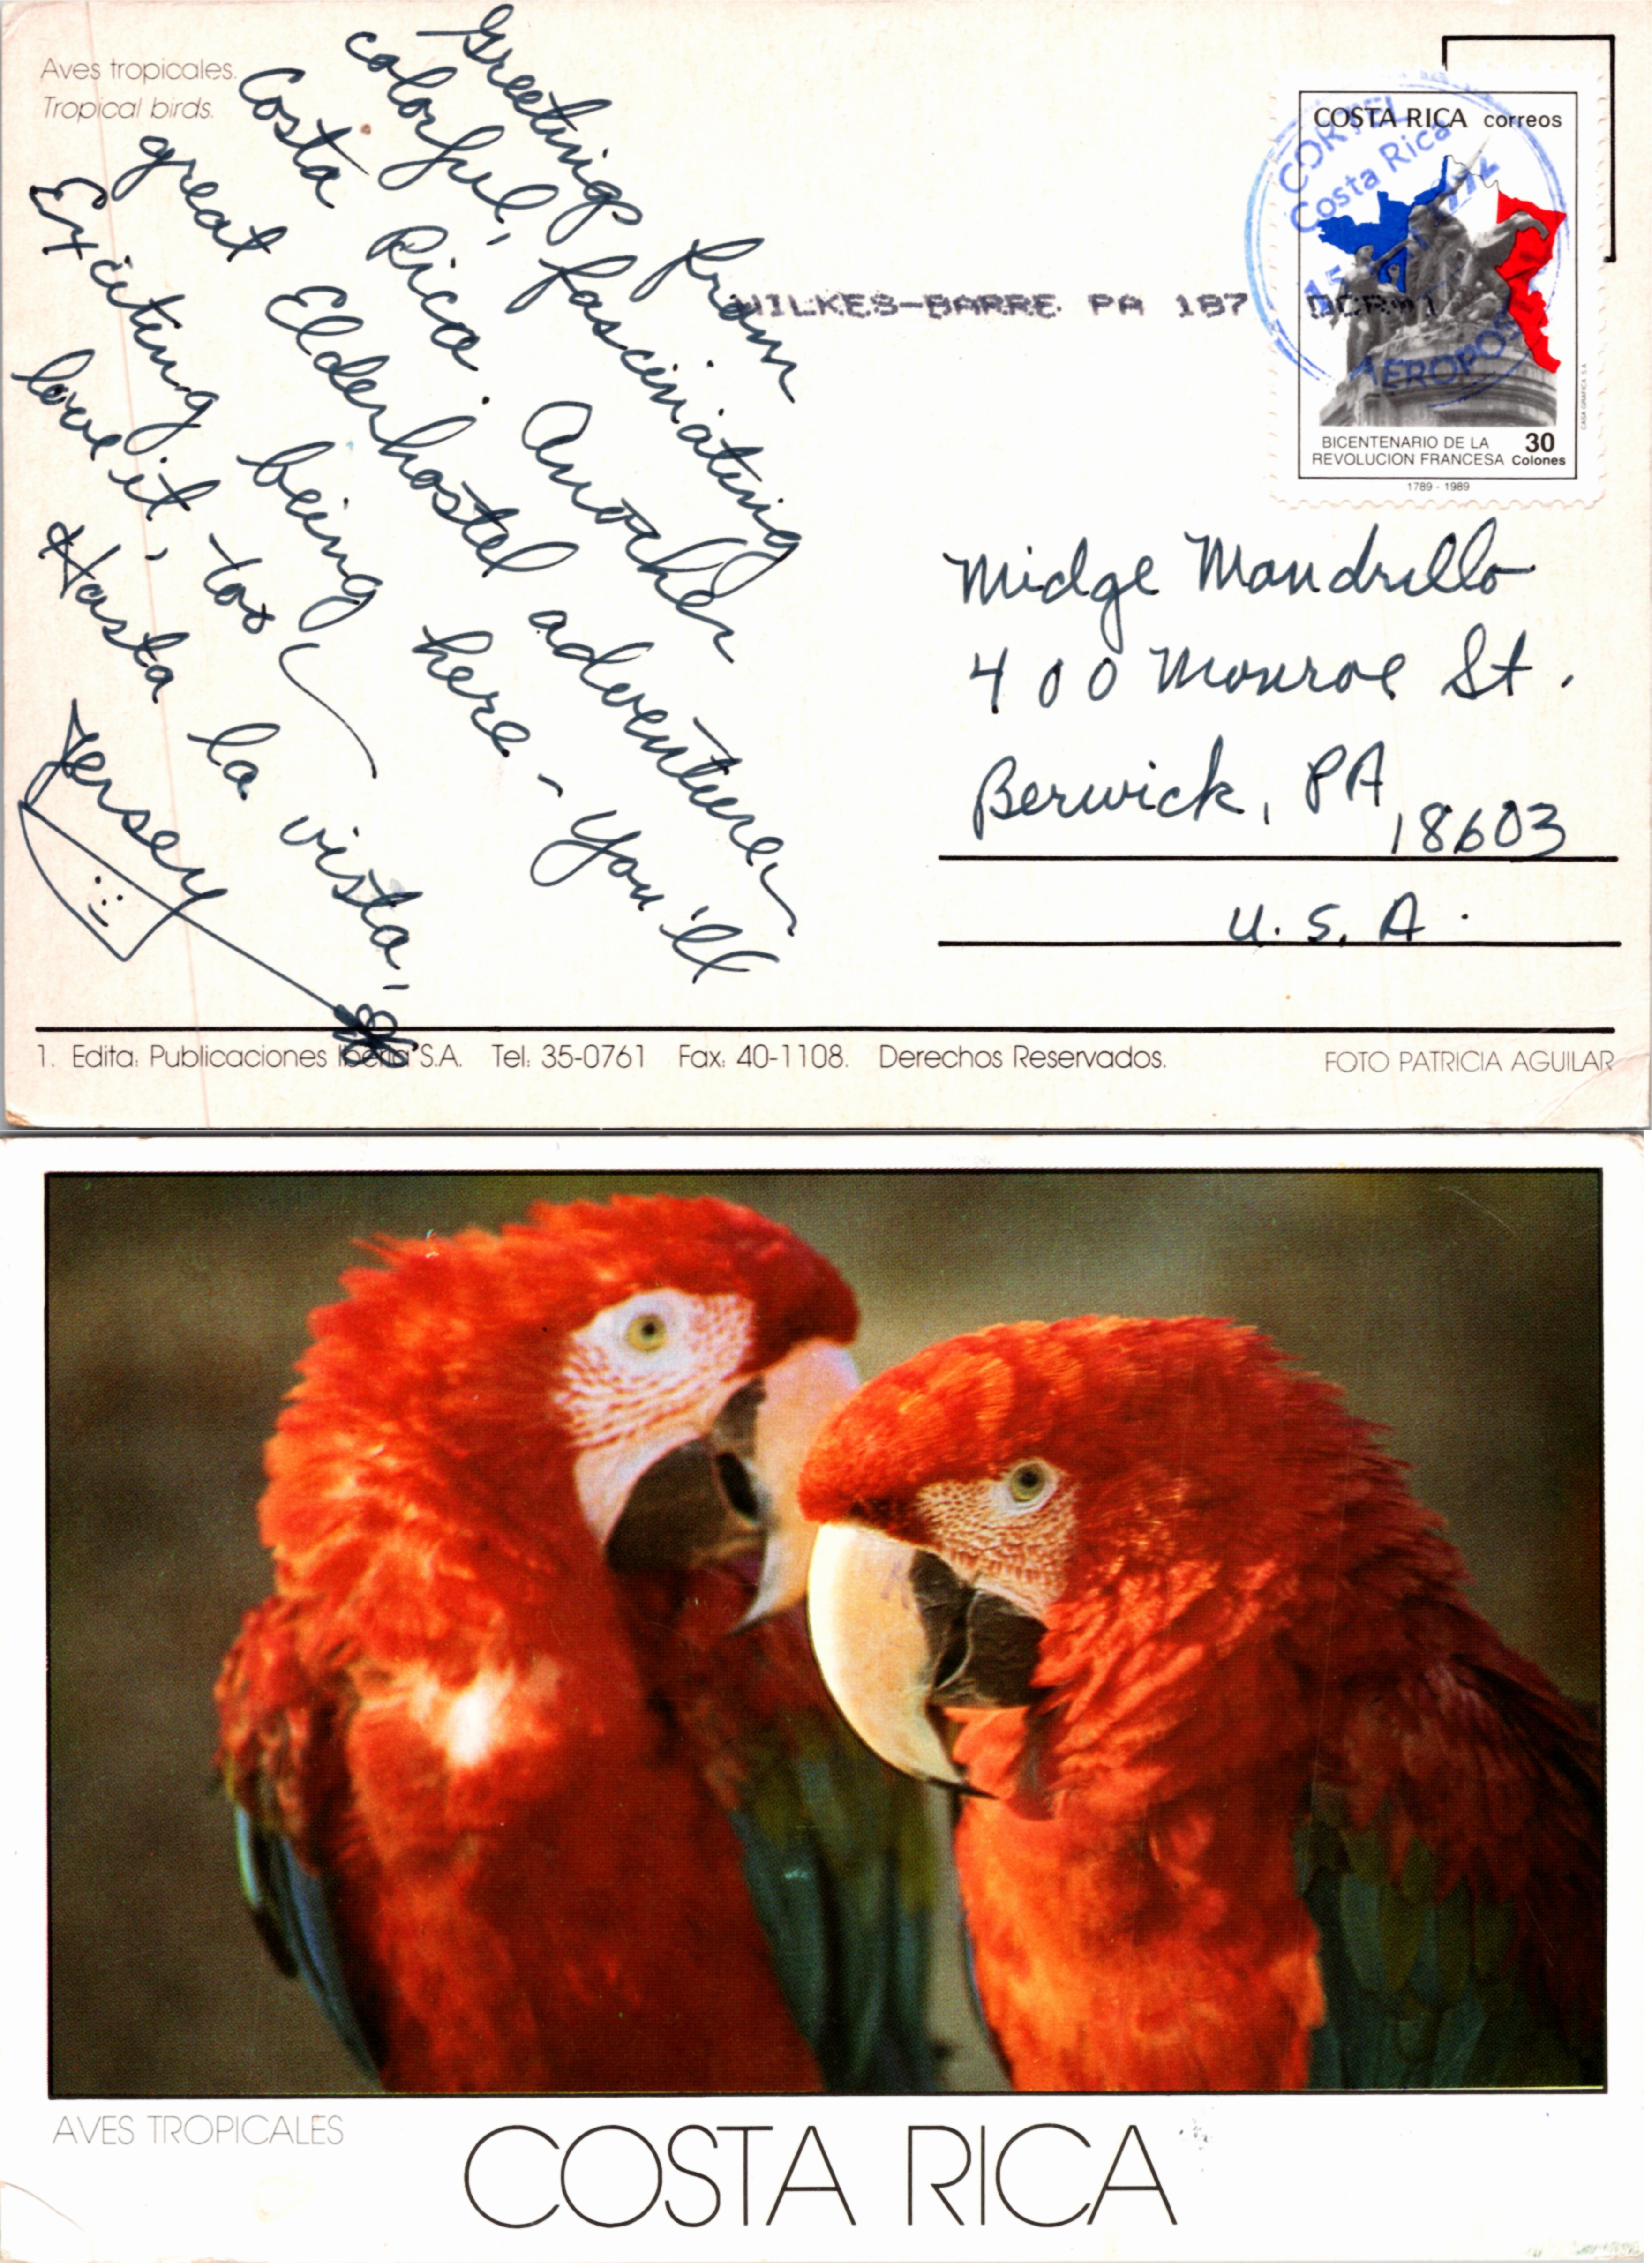 Aves tropicales.
Tropical birds.
Greetings from
colorful, fascinating
Costa Rica. Another
great Elderhostel adventure
Exciting being here - You'll
love it, too
Hasta la vista,
Jersey
COSTA RICA correos
CORTEL
Costa Rica
AEROPOS
BICENTENARIO DE LA
REVOLUCION FRANCESA
30
Colones
1789 - 1989
CASA GRAFICA S.A.
WILKES-BARRE PA 187
Midge Mandrillo
400 Monroe St.
Berwick, PA
18603
U.S.A.
1. Edita: Publicaciones Iberia S.A. Tel: 35-0761 Fax: 40-1108. Derechos Reservados.
FOTO PATRICIA AGUILAR
AVES TROPICALES
COSTA RICA